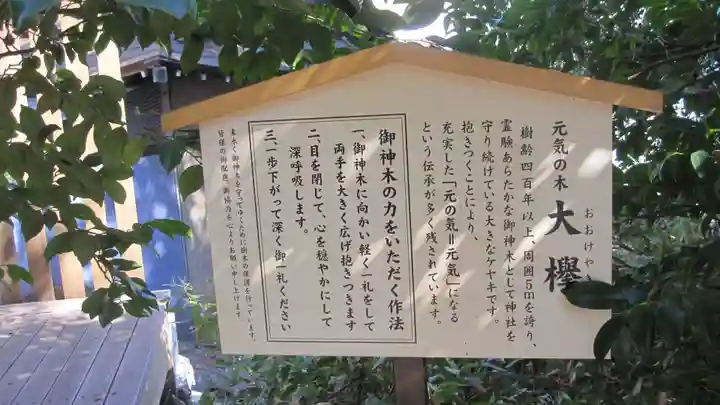 元気の木 大欅
おおけや
樹齢四百年以上、周囲5mを誇り、
霊験あらたかな御神木として神社を
守り続けている大きなケヤキです。
抱きつくことにより、
充実した「元の気=元気」になる
という伝承が多く残されています。
御神木の力をいただく作法
一、御神木に向かい軽く一礼をして
両手を大きく広げ抱きつきます
二、目を閉じて、心を穏やかにして
深呼吸します。
三、一歩下がって深く御一礼ください
末永く御神木を守ってゆくために樹木の保護を行っています。
皆様の御配慮、御協力を心よりお願い申し上げます